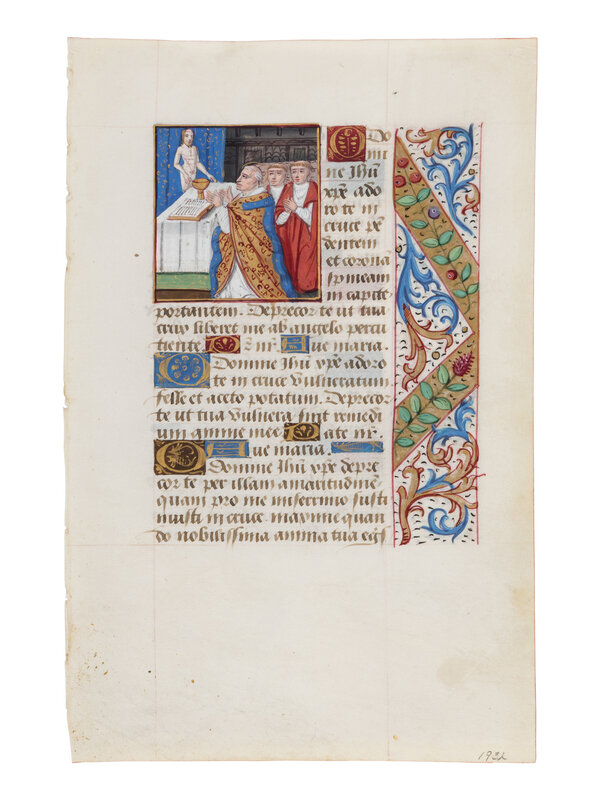 O Do
mi
ne Jhu
xpe ado
ro te in
cruce pē
dentem
et corona
spineam
in capite
portantem. Deprecor te ut tua
crux liberet me ab angelo percu
tiente. P nr̄. Aue maria.
O Domine Jhu xpe adoro
te in cruce vulneratum
felle et aceto potatum. Deprecor
te ut tua vulnera sint remedi
um anime mee. Pate nr̄.
Aue maria.
O Domine Jhu xpe depre
cor te per illam amaritudinē
quam pro me miserrimo susti
nuisti in cruce maxime quan
do nobilissima anima tua